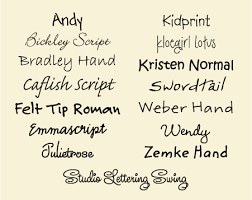 Andy
Bickley Script
Bradley Hand
Caflish Script
Felt Tip Roman
Emmascript
Julietrose
Kidprint
klocgirl lotus
Kristen Normal
Swordtail
Weber Hand
Wendy
Zemke Hand
Studio Lettering Swing